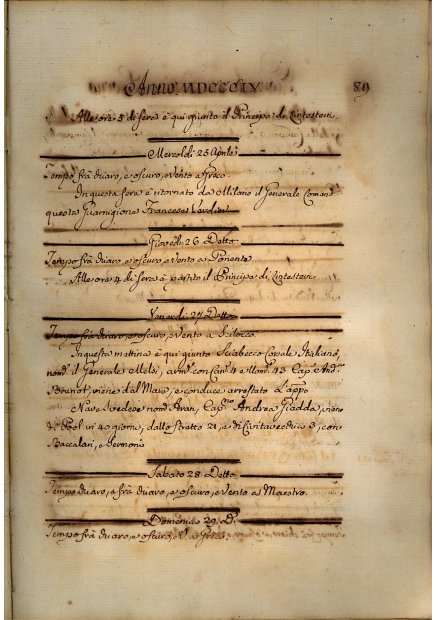 Anno MDCCCIX. 89
Alle ore 5 di sera è qui giunto il Principe di Lintestein.
Mercoldi 25 Aprile
Tempo frà chiaro, e oscuro, e Vento a Greco.
In questa sera è ritornato da Milano il Generale Comand.
questa Guarnigione Francese Verdier
Giovedi 26 Detto
Tempo frà chiaro, e oscuro, e Vento a Ponente
Alle ore 4 di sera è partito il Principe di Lintestein
Venardi 27 Detto
Tempo frà chiaro, e oscuro, e Vento a Scilocco
In questa mattina è qui giunto Sciabecco Corale Italiano,
nom. il Generale Melsi, arm. con Can. 4 e Uom. 43 Cap. And.
Brunot, viene dal Mare, e conduce arrestato L'app.
Nave Svedese nom. Aran, Cap.no Andrea Gadda, viene
di in 40 giorni, dallo Stretto 21, e di Civitavecchia 3, con
Baccalari, e
Sabato 28 Detto
Tempo chiaro, e frà chiaro, e oscuro, e Vento a Maestro.
Domenica 29 D.
Tempo frà chiaro, e oscuro, e V. a Greco